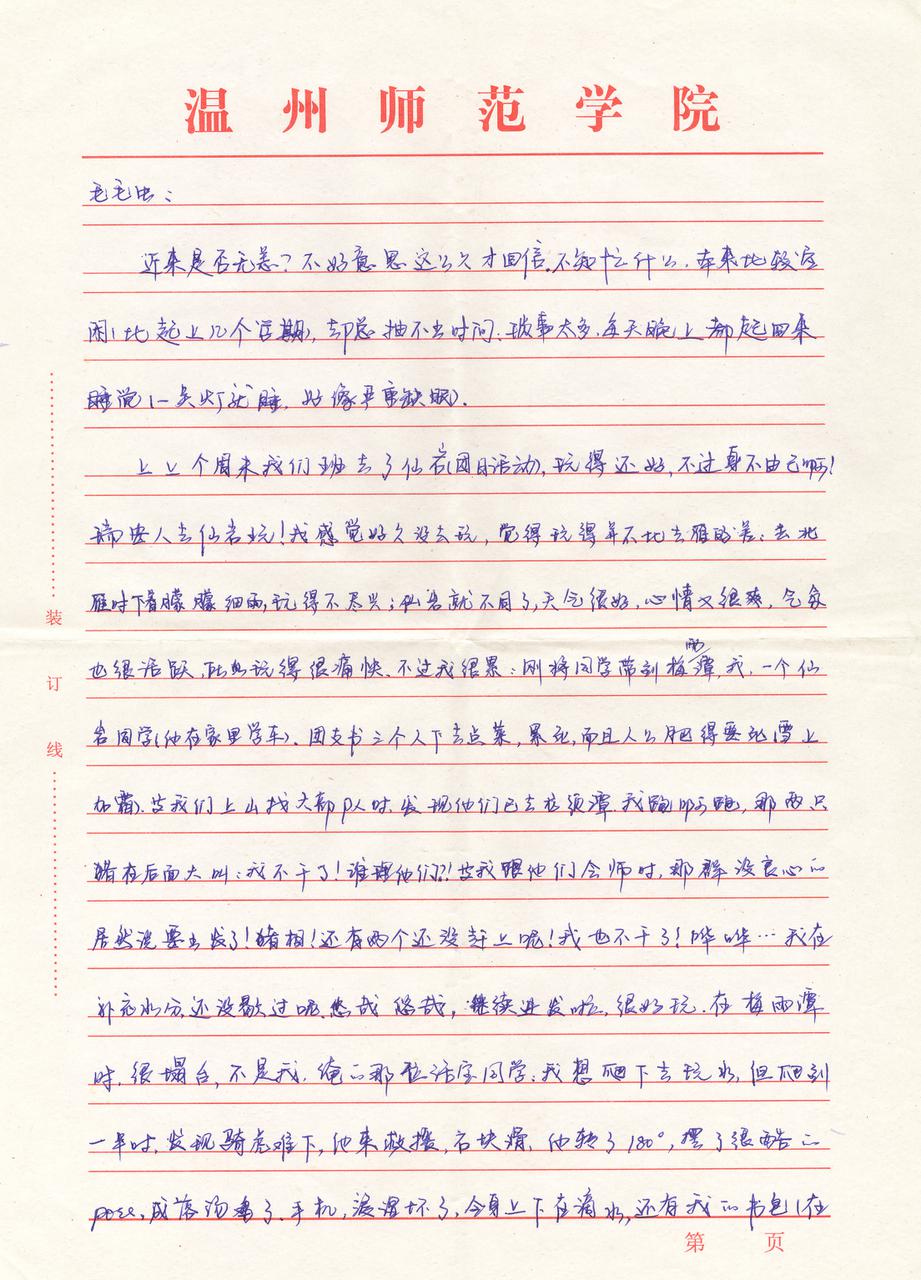 温州师范学院
毛毛虫：
近来是否无恙？不好意思这么久才回信。不知忙什么，本来比较空
闲（比起上几个星期），却总抽不出时间；琐事太多，每天晚上都起回来
睡觉（一关灯就睡，好像严重缺眠）。
上上个周末我们班去了仙岩（团日活动），玩得还好，不过身不由己啊！
瑞安人去仙岩玩！我感觉好久没去玩，觉得玩得并不比去雁的差；去北
雁时下着朦朦细雨，玩得不尽兴；仙岩就不同了，天气很好，心情又很爽，气氛
也很活跃，因此玩得很痛快。不过我很累：刚将同学带到梅雨潭，我，一个仙
岩同学（他在家里学车）、团支书三个人下去点菜，累死，而且人么肥得要死（雪上
加霜）。当我们上山找大部队时，发现他们已去龙须潭，我跑啊跑，那两只
猪在后面大叫：我不干了！谁理他们？！当我跟他们会师时，那群没良心的
居然说要出发了！猪相！还有两个还没赶上呢！我也不干了！哗哗…我在
补充水分，还没歇过呢。悠哉悠哉，继续进发啦，很好玩。在梅雨潭
时，很塌台，不是我，俺的那位活宝同学：我想爬下去玩水，但爬到
一半时，发现骑虎难下，他来救援，石块滑，他转了180°，摆了很酷的
pose，成落汤鸡了。手机，浸湿坏了，全身上下在滴水，还有我的书包（在
装
订
线
第 页